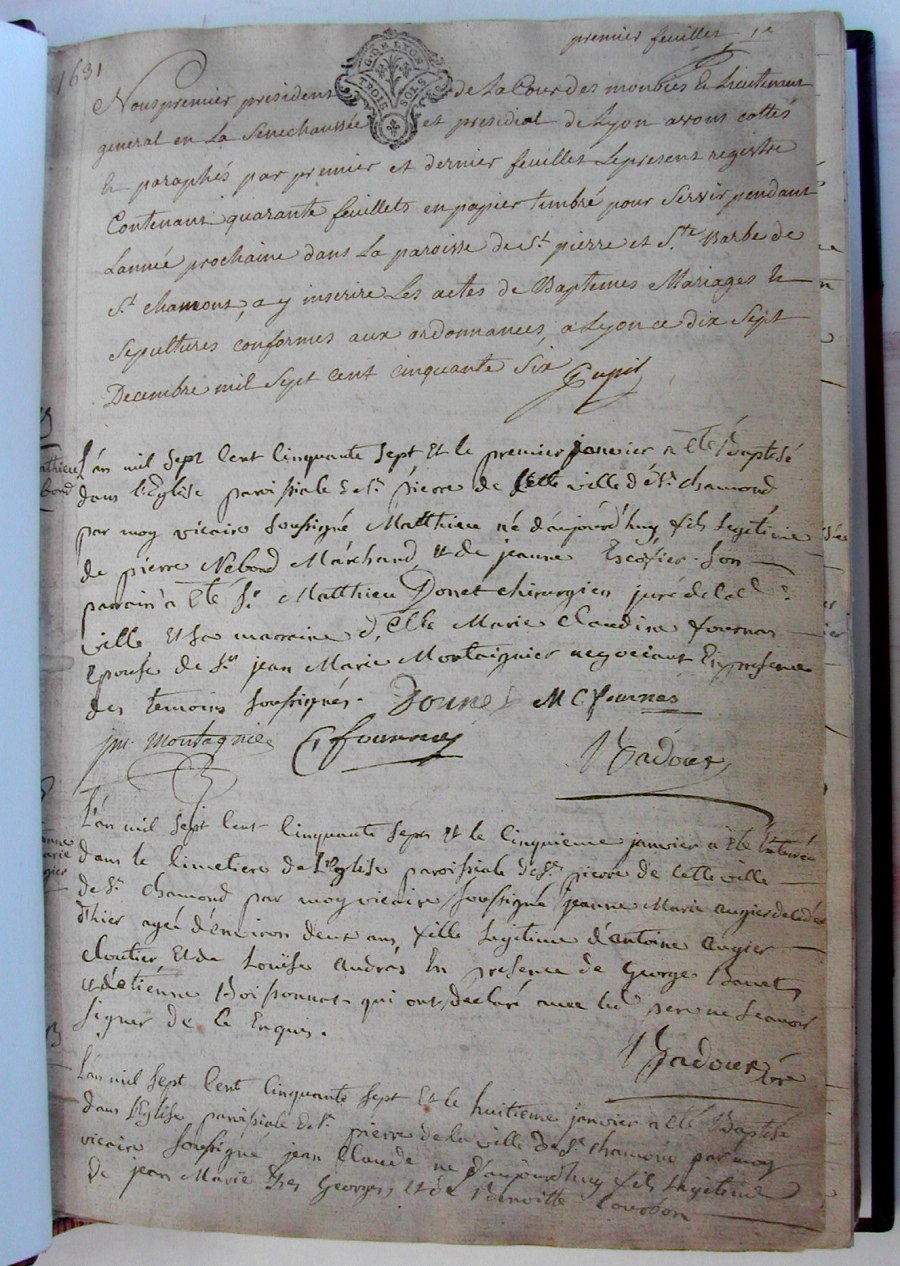 premier feuillet 1er
1631
GION LYON
SOLS
Nous premier president de La Cour des monoies & Lieutenant
general en La Senechaussée et presidial de Lyon avons cottés
& paraphés par premier et dernier feuillet Le present registre
Contenant quarante feuillets en papier timbré pour Servir pendant
Lannée prochaine dans La paroisse de St pierre et Ste Barbe de
St chamont, a y inscrire Les actes de Baptemes Mariages &
Sepultures conformes aux ordonnances, a Lyon ce dix Sept
Decembre mil Sept cent cinquante Six Pupil
L'an mil Sept Cent Cinquante Sept Et le premier janvier a été Baptisé
dans l'Eglise paroissiale de St pierre de Cette ville de St chamond
par moy vicaire Soussigné Matthieu né d'aujourd'huy fils Legitime
de pierre Nebond Marchand, et de jeanne Escofier. Son
parrain a été Sr Matthieu Donet chirurgien juré de lad
ville Et sa marraine Marie Claudine fournas
Epouse de Sr jean Marie Montaignier negociant En presence
des temoins Soussignés. Donnet M C fournas
jm. montagnier fournas
Nadoux
L'an mil Sept Cent Cinquante Sept et le Cinquieme janvier a été Enterrée
dans le Cimetiere de L'Eglise paroissiale de St pierre de Cette ville
de St chamond par moy vicaire Soussigné jeanne Marie augier decedée
d'hier agée d'environ deux ans, fille Legitime d'antoine augier
cloutier, Et de Louise andrés En presence de George Bonet,
et d'etienne Boissonnat qui ont declaré avec led pere ne Scavoir
Signer de ce Enquis.
Nadoux vre
L'an mil Sept Cent Cinquante Sept Et le huitieme janvier a été Baptisé
dans l'Eglise paroissiale de St pierre de la ville de St chamond par moy
vicaire Soussigné jean Claude né d'aujourd'huy fils Legitime
de jean Marie Georges, et de Benoitte Courbon